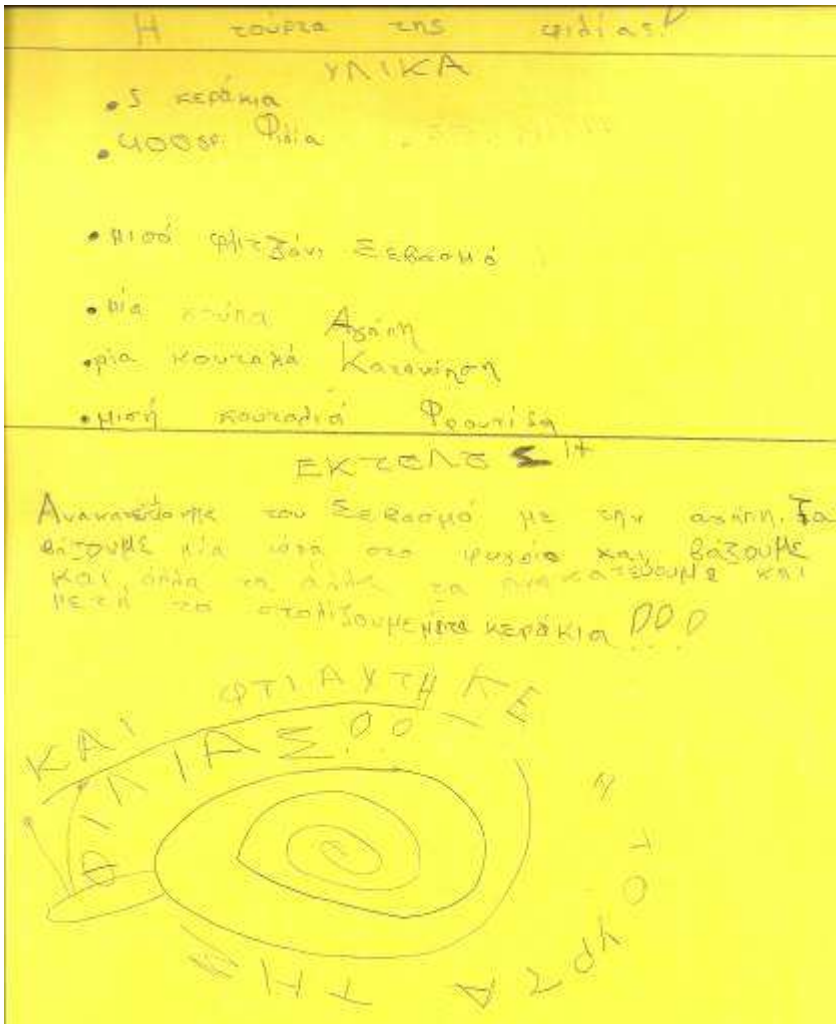 Η τούρτα της φιλίας!
ΥΛΙΚΑ
• 5 κεράκια
• 400 γρ. Φιλία
• μισό φλιτζάνι Σεβασμό
• μία κούπα Αγάπη
• μία κουταλιά Κατανόηση
• μισή κουταλιά Φροντίδα
ΕΚΤΕΛΕΣΗ
Ανακατεύουμε του Σεβασμό με την αγάπη. Τα
βάζουμε μία ώρα στο ψυγείο και βάζουμε
και όλα τα άλλα τα ανακατεύουμε και
μετά το στολίζουμε με τα κεράκια !!!
ΚΑΙ ΦΤΙΑΧΤΗΚΕ
Η ΤΟΥΡΤΑ ΤΗΣ
ΦΙΛΙΑΣ!!!